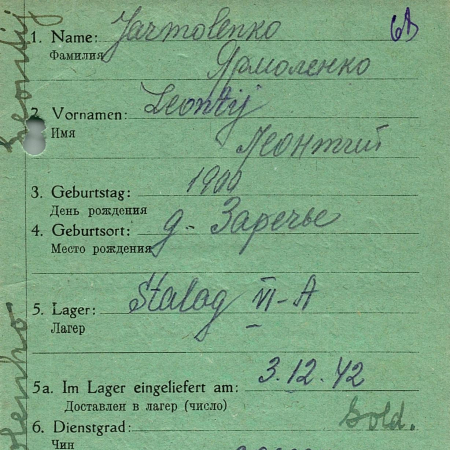 1. Name: Jarmolenko 6A
Фамилия Ярмоленко
2. Vornamen: Leontij
Имя Леонтий
3. Geburtstag: 1900
День рождения
4. Geburtsort: д. Заречье
Место рождения
5. Lager: Stalag VI-A
Лагер
5a. Im Lager eingeliefert am: 3.12.42
Доставлен в лагер (число)
6. Dienstgrad: Sold.
Чин
Leontij
olenko